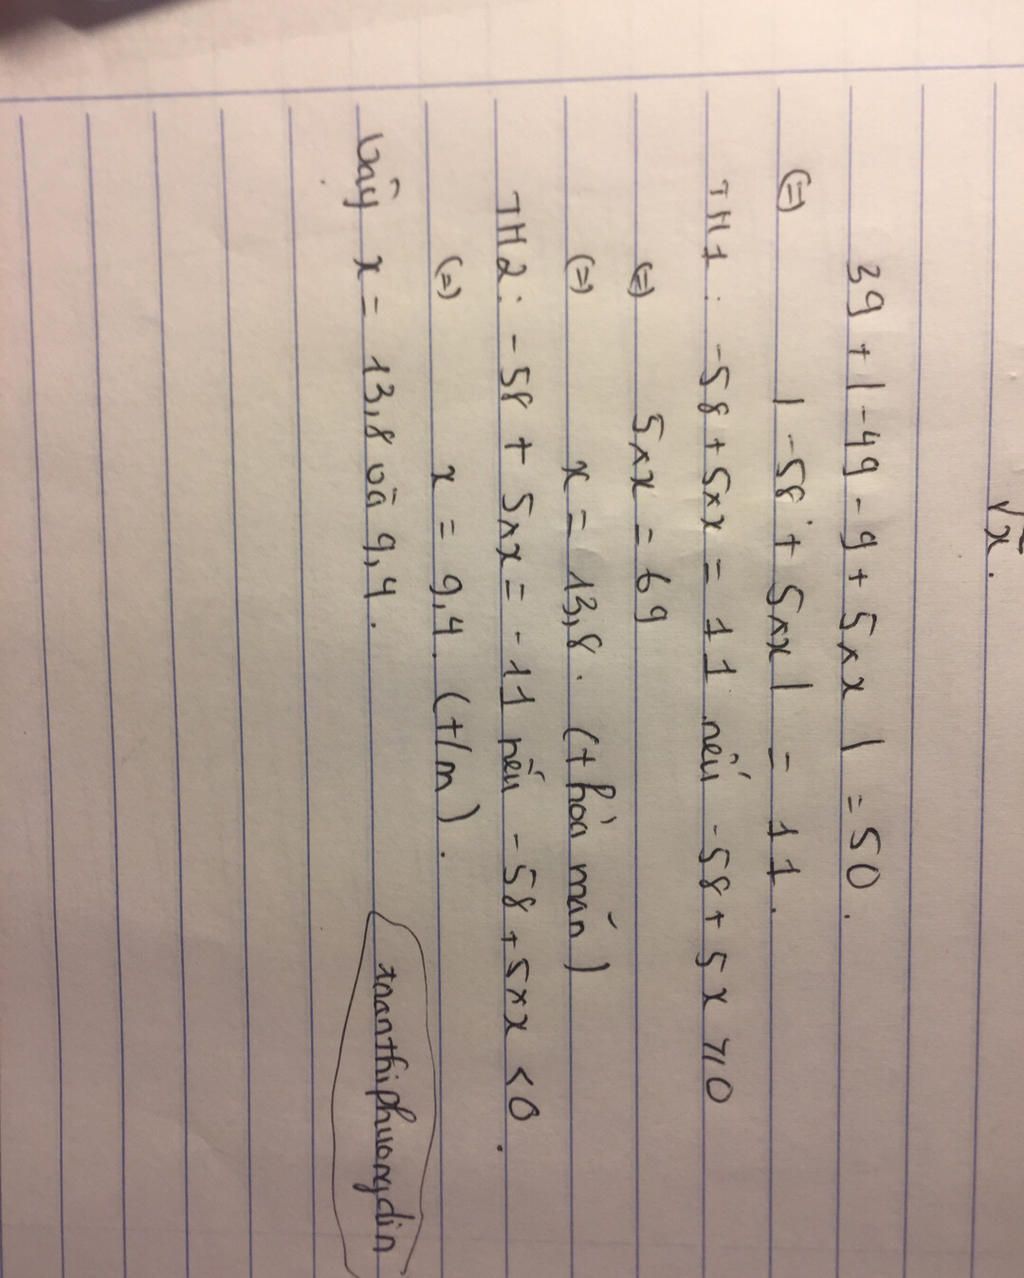 √x̃.
39 + | -49 - 9 + 5 x x | = 50.
(=) | -58 + 5 x x | = 11.
TH1 : -58 + 5 x x = 11 nếu -58 + 5 x ≥ 0
(=) 5 x x = 69
(=) x = 13,8. (thỏa mãn)
TH2 : -58 + 5 x x = -11 nếu -58 + 5 x x < 0.
(=) x = 9,4. (t/m).
Vậy x = 13,8 và 9,4.
xnanthiphuongdin